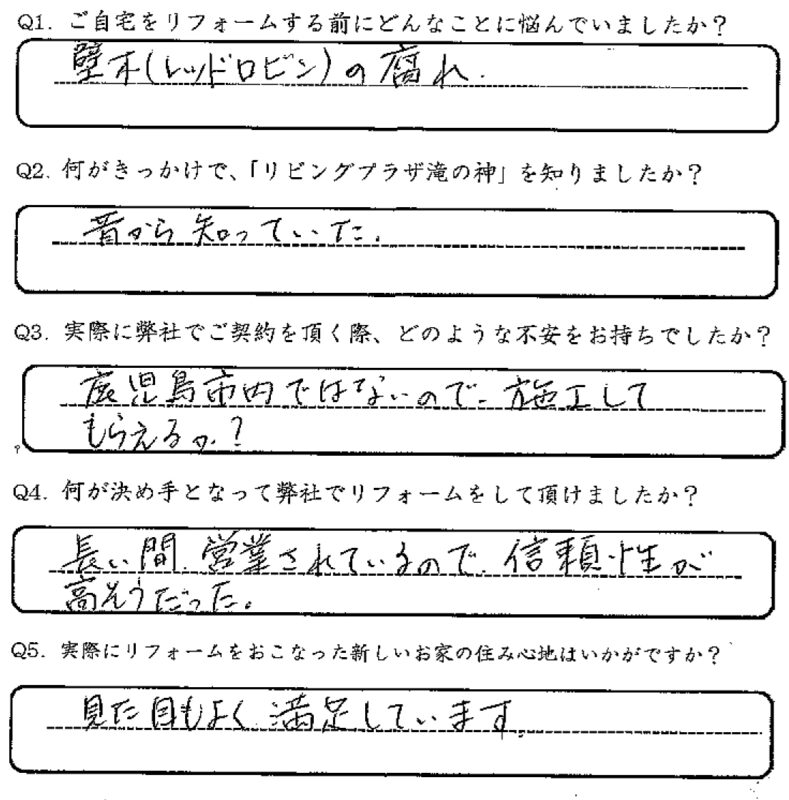 Q1. ご自宅をリフォームする前にどんなことに悩んでいましたか？
壁木(レッドロビン)の腐れ.
Q2. 何がきっかけで、「リビングプラザ滝の神」を知りましたか？
昔から知っていた.
Q3. 実際に弊社でご契約を頂く際、どのような不安をお持ちでしたか？
鹿児島市内ではないので、施工して
もらえるか？
Q4. 何が決め手となって弊社でリフォームをして頂けましたか？
長い間、営業されているので、信頼性が
高そうだった。
Q5. 実際にリフォームをおこなった新しいお家の住み心地はいかがですか？
見た目もよく満足しています。